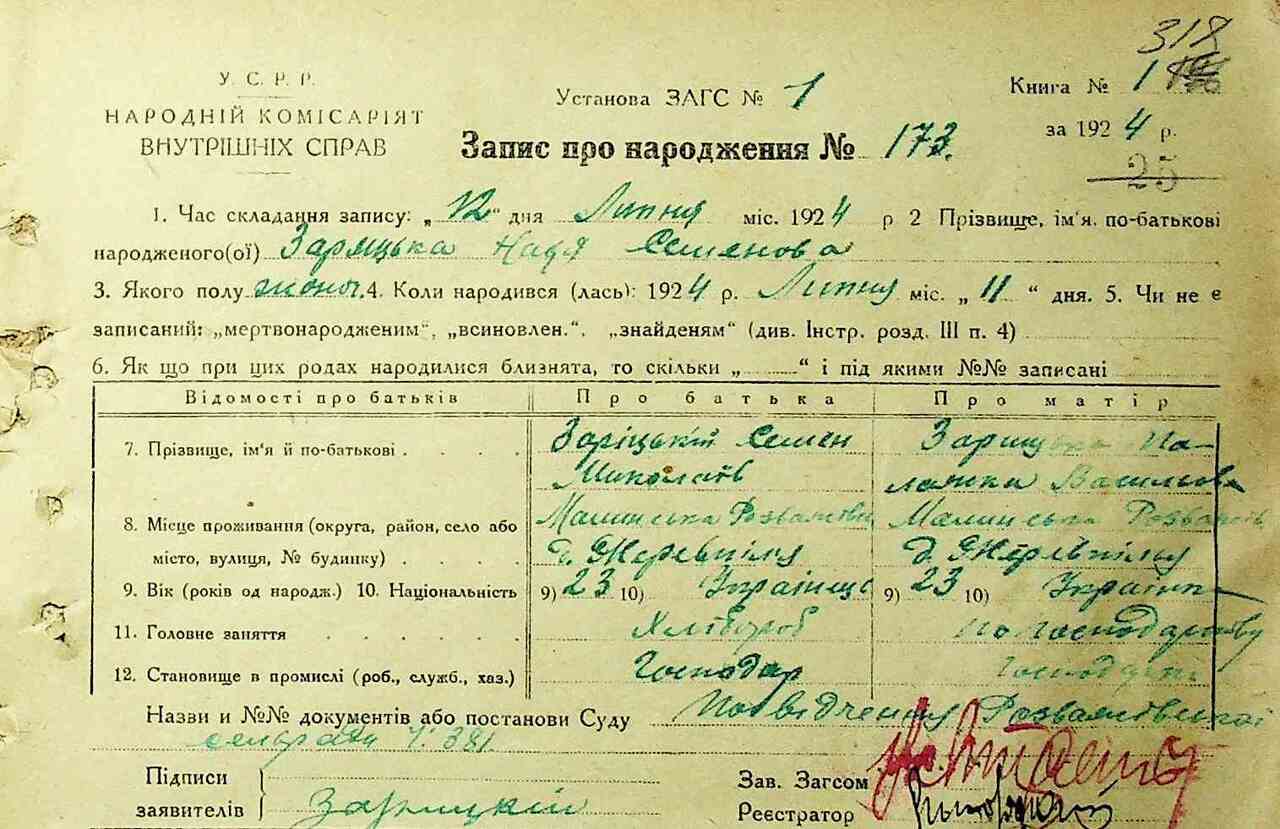 318
У. С. Р. Р.
НАРОДНІЙ КОМІСАРІЯТ
ВНУТРІШНІХ СПРАВ
Установа ЗАГС № 1
Книга № 1
за 1924 р.
25
Запис про народження № 173.
1. Час складання запису: „12“ дня Липня міс. 1924 р 2 Прізвище, ім'я, по-батькові
народженого(ої) Заріцька Надя Семенова
3. Якого полу жіноч. 4. Коли народився (лась): 1924 р. Липня міс. „11“ дня. 5. Чи не є
записаний: „мертвонародженим“, „всиновлен.“, „знайденям“ (див. Інстр. розд. III п. 4)
6. Як що при цих родах народилися близнята, то скільки „ “ і під якими №№ записані
Відомості про батьків Про батька Про матір
7. Прізвище, ім'я й по-батькові . . . . Заріцький Семен Зарицька Па-
Миколаїв лажка Василева
8. Місце проживання (округа, район, село або Малинська Малинська
місто, вулиця, № будинку) . . . . д.
9. Вік (років од народж.) 10. Національність 9) 23 10) Українець 9) 23 10)
11. Головне заняття . . . . . . Хлібороб по господарству
12. Становище в промислі (роб., служб., хаз.) Господар
Назви и №№ документів або постанови Суду Посвідчення Розважівської
сельради 381
Підписи
заявителів Зарицкий
Зав. Загсом
Реєстратор